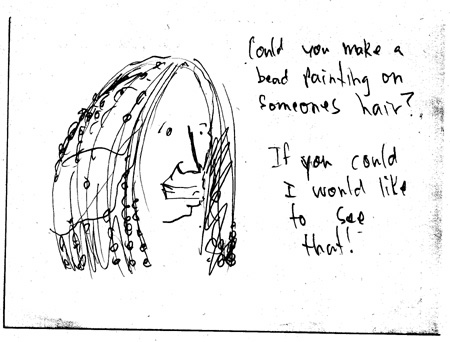 Could you make a
bead painting on
someones hair?
If you could
I would like
to see
that!